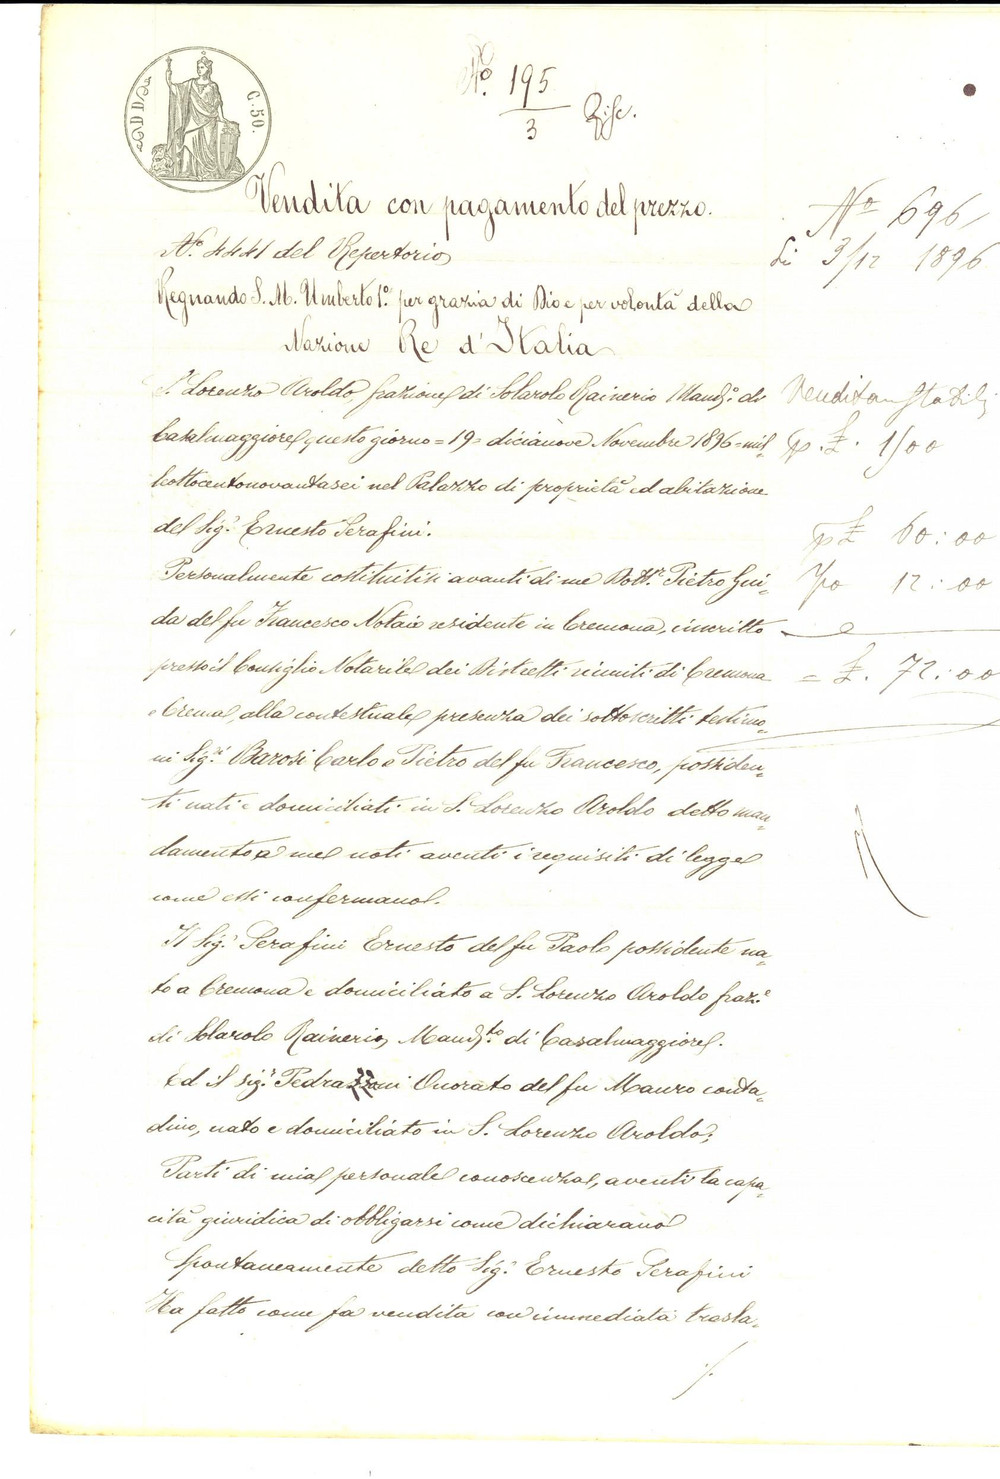 C. 50.
N.º 195
3
Vendita con pagamento del prezzo.
N.º 4441 del Repertorio
Regnando S. M. Umberto 1.º per grazia di Dio e per volontà della
Nazione Re d'Italia
S. Lorenzo Aroldo, frazione di Solarolo Rainerio Mand.º di
Casalmaggiore questo giorno = 19 = dicianove Novembre 1896 = mil=
leottocentonovantasei nel Palazzo di proprietà ed abitazione
del Sig.r Ernesto Serafini.
Personalmente costituitisi avanti di me Dott.r Pietro Gui=
da del fu Francesco Notaio residente in Cremona, inscritto
presso il Consiglio Notarile dei Distretti riuniti di Cremona
e Crema, alla contestuale presenza dei sottoscritti testimo=
ni Sig.ri Barosi Carlo e Pietro del fu Francesco, possiden=
ti nati e domiciliati in S. Lorenzo Aroldo detto man=
damento a me noti aventi i requisiti di legge
come essi confermano.
Il Sig.r Serafini Ernesto del fu Paolo possidente na=
to a Cremona e domiciliato a S. Lorenzo Aroldo fraz.e
di Solarolo Rainerio, Mand.to di Casalmaggiore.
Ed il sig.r Pedrazzani Onorato del fu Mauro conta=
dino, nato e domiciliato in S. Lorenzo Aroldo;
Parti di mia personale conoscenza, aventi la capa=
cità giuridica di obbligarsi come dichiarano
Spontaneamente detto Sig.r Ernesto Serafini
Ha fatto come fa vendita con immediata trasla=
./.
Nº 696
Li 3/12 1896
Vendita Stabili
p. £. 1500
p £ 60:00
12:00
= £. 72:00